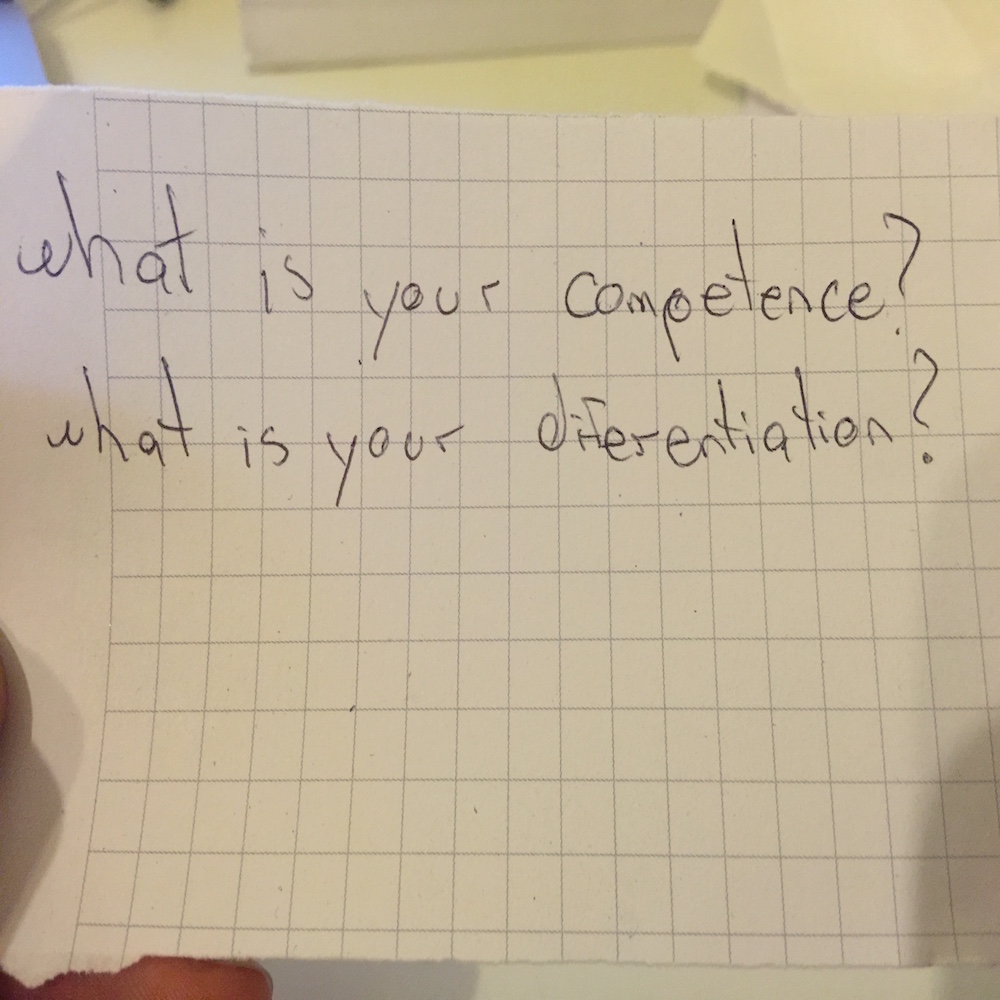 what is your competence?
what is your diferentiation?